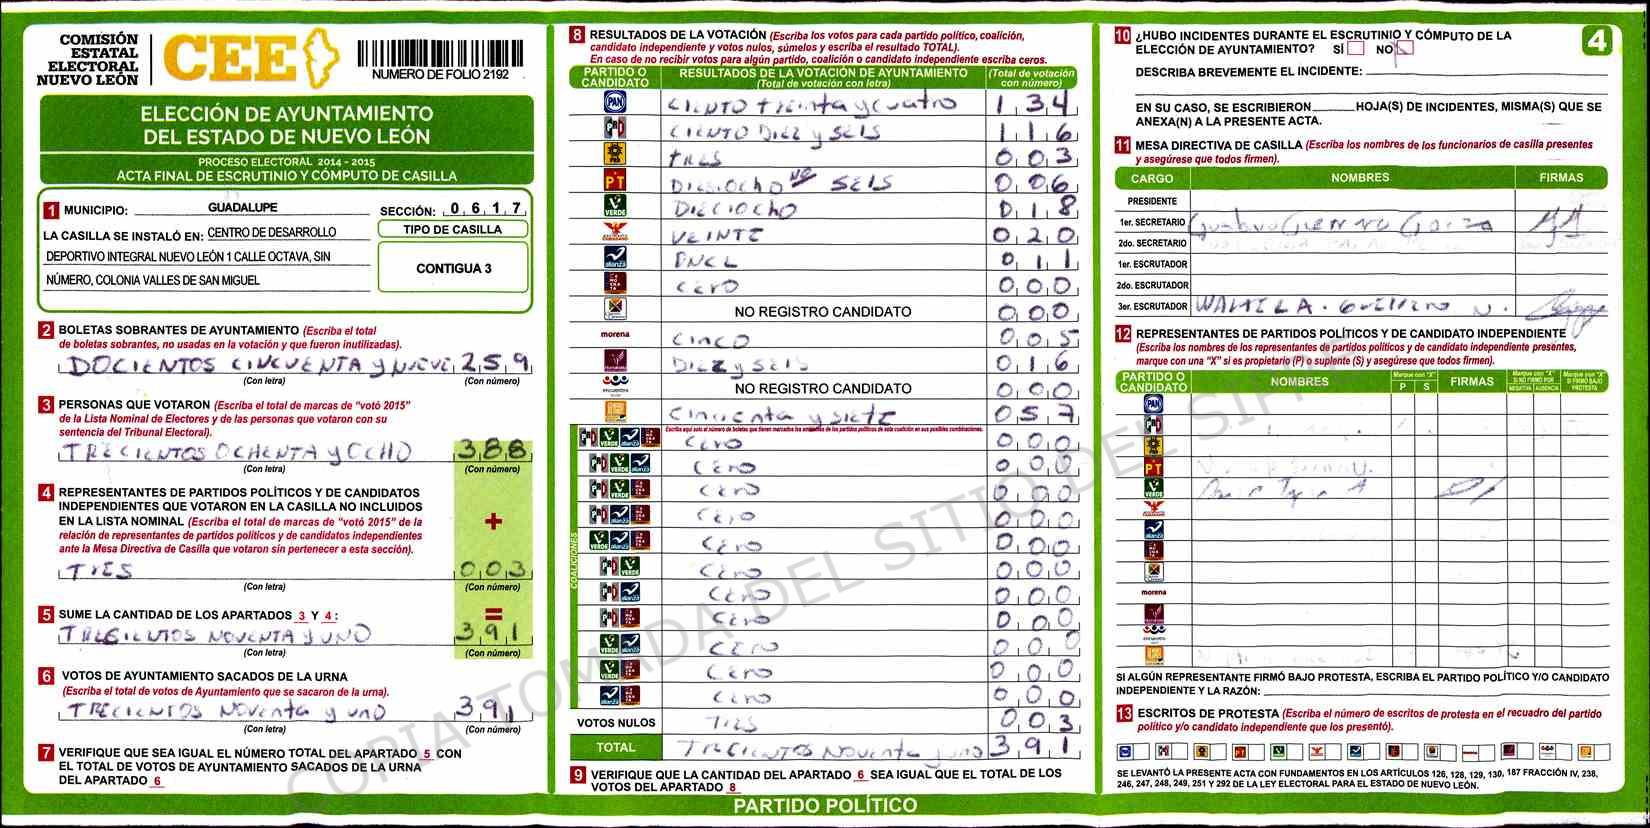 COMISIÓN
ESTATAL
ELECTORAL
NUEVO LEÓN
CEE
NUMERO DE FOLIO 2192
ELECCIÓN DE AYUNTAMIENTO
DEL ESTADO DE NUEVO LEÓN
PROCESO ELECTORAL 2014 - 2015
ACTA FINAL DE ESCRUTINIO Y CÓMPUTO DE CASILLA
1 MUNICIPIO: GUADALUPE SECCIÓN: 0 6 1 7
LA CASILLA SE INSTALÓ EN: CENTRO DE DESARROLLO
DEPORTIVO INTEGRAL NUEVO LEÓN 1 CALLE OCTAVA, SIN
NÚMERO, COLONIA VALLES DE SAN MIGUEL
TIPO DE CASILLA
CONTIGUA 3
2 BOLETAS SOBRANTES DE AYUNTAMIENTO (Escriba el total
de boletas sobrantes, no usadas en la votación y que fueron inutilizadas).
DOCIENTOS CINCUENTA y NUEVE 2 5 9
(Con letra) (Con número)
3 PERSONAS QUE VOTARON (Escriba el total de marcas de “votó 2015”
de la Lista Nominal de Electores y de las personas que votaron con su
sentencia del Tribunal Electoral).
TRECIENTOS OCHENTA y OCHO 3 8 8
(Con letra) (Con número)
4 REPRESENTANTES DE PARTIDOS POLÍTICOS Y DE CANDIDATOS
INDEPENDIENTES QUE VOTARON EN LA CASILLA NO INCLUIDOS
EN LA LISTA NOMINAL (Escriba el total de marcas de “votó 2015” de la
relación de representantes de partidos políticos y de candidatos independientes
ante la Mesa Directiva de Casilla que votaron sin pertenecer a esta sección).
+
TrES 0 0 3
(Con letra) (Con número)
5 SUME LA CANTIDAD DE LOS APARTADOS 3 Y 4 :
=
TRECIENTOS NOVENTA y UNO 3 9 1
(Con letra) (Con número)
6 VOTOS DE AYUNTAMIENTO SACADOS DE LA URNA
(Escriba el total de votos de Ayuntamiento que se sacaron de la urna).
TRECIENTOS NOVENTA y UNO 3 9 1
(Con letra) (Con número)
7 VERIFIQUE QUE SEA IGUAL EL NÚMERO TOTAL DEL APARTADO 5 CON
EL TOTAL DE VOTOS DE AYUNTAMIENTO SACADOS DE LA URNA
DEL APARTADO 6
8 RESULTADOS DE LA VOTACIÓN (Escriba los votos para cada partido político, coalición,
candidato independiente y votos nulos, súmelos y escriba el resultado TOTAL).
En caso de no recibir votos para algún partido, coalición o candidato independiente escriba ceros.
PARTIDO O CANDIDATO
RESULTADOS DE LA VOTACIÓN DE AYUNTAMIENTO
(Total de votación con letra)
(Total de votación con número)
PAN CIENTO treinta y cuatro 1 3 4
PRI CIENTO DIEZ y SEIS 1 1 6
PRD tRES 0 0 3
PT DIECIOCHO NO SEIS 0 0 6
VERDE DIECIOCHO 0 1 8
VEINTE 0 2 0
alianza ONCE 0 1 1
CERO 0 0 0
NO REGISTRO CANDIDATO 0 0 0
morena CINCO 0 0 5
DIEZ y SEIS 0 1 6
NO REGISTRO CANDIDATO 0 0 0
Cincuenta y siete 0 5 7
Escriba aquí solo el número de boletas que tienen marcados los emblemas de los partidos políticos de esta coalición en sus posibles combinaciones.
COALICIONES
PRI VERDE alianza CERO 0 0 0
PRI VERDE alianza CERO 0 0 0
PRI VERDE CERO 0 0 0
PRI alianza CERO 0 0 0
VERDE alianza CERO 0 0 0
PRI VERDE CERO 0 0 0
PRI alianza CERO 0 0 0
PRI CERO 0 0 0
VERDE alianza CERO 0 0 0
VERDE CERO 0 0 0
alianza CERO 0 0 0
VOTOS NULOS TRES 0 0 3
TOTAL TRECIENTOS NOVENTA y UNO 3 9 1
9 VERIFIQUE QUE LA CANTIDAD DEL APARTADO 6 SEA IGUAL QUE EL TOTAL DE LOS
VOTOS DEL APARTADO 8
PARTIDO POLÍTICO
10 ¿HUBO INCIDENTES DURANTE EL ESCRUTINIO Y CÓMPUTO DE LA
ELECCIÓN DE AYUNTAMIENTO? SÍ NO
4
DESCRIBA BREVEMENTE EL INCIDENTE:
EN SU CASO, SE ESCRIBIERON HOJA(S) DE INCIDENTES, MISMA(S) QUE SE
ANEXA(N) A LA PRESENTE ACTA.
11 MESA DIRECTIVA DE CASILLA (Escriba los nombres de los funcionarios de casilla presentes
y asegúrese que todos firmen).
CARGO NOMBRES FIRMAS
PRESIDENTE
1er. SECRETARIO Gustavo Guerrero Garza
2do. SECRETARIO
1er. ESCRUTADOR
2do. ESCRUTADOR
3er. ESCRUTADOR
12 REPRESENTANTES DE PARTIDOS POLÍTICOS Y DE CANDIDATO INDEPENDIENTE
(Escriba los nombres de los representantes de partidos políticos y de candidato independiente presentes,
marque con una “X” si es propietario (P) o suplente (S) y asegúrese que todos firmen).
PARTIDO O CANDIDATO
NOMBRES
Marque con “X”
P S
FIRMAS
Marque con “X” SI NO FIRMÓ POR
NEGATIVA AUSENCIA
Marque con “X” SI FIRMÓ BAJO PROTESTA
PAN
PRI
PRD
PT
VERDE
alianza
morena
SI ALGÚN REPRESENTANTE FIRMÓ BAJO PROTESTA, ESCRIBA EL PARTIDO POLÍTICO Y/O CANDIDATO
INDEPENDIENTE Y LA RAZÓN:
13 ESCRITOS DE PROTESTA (Escriba el número de escritos de protesta en el recuadro del partido
político y/o candidato independiente que los presentó).
SE LEVANTÓ LA PRESENTE ACTA CON FUNDAMENTOS EN LOS ARTÍCULOS 126, 128, 129, 130, 187 FRACCIÓN IV, 238,
246, 247, 248, 249, 251 Y 292 DE LA LEY ELECTORAL PARA EL ESTADO DE NUEVO LEÓN.
COPIA TOMADA DEL SITIO DEL